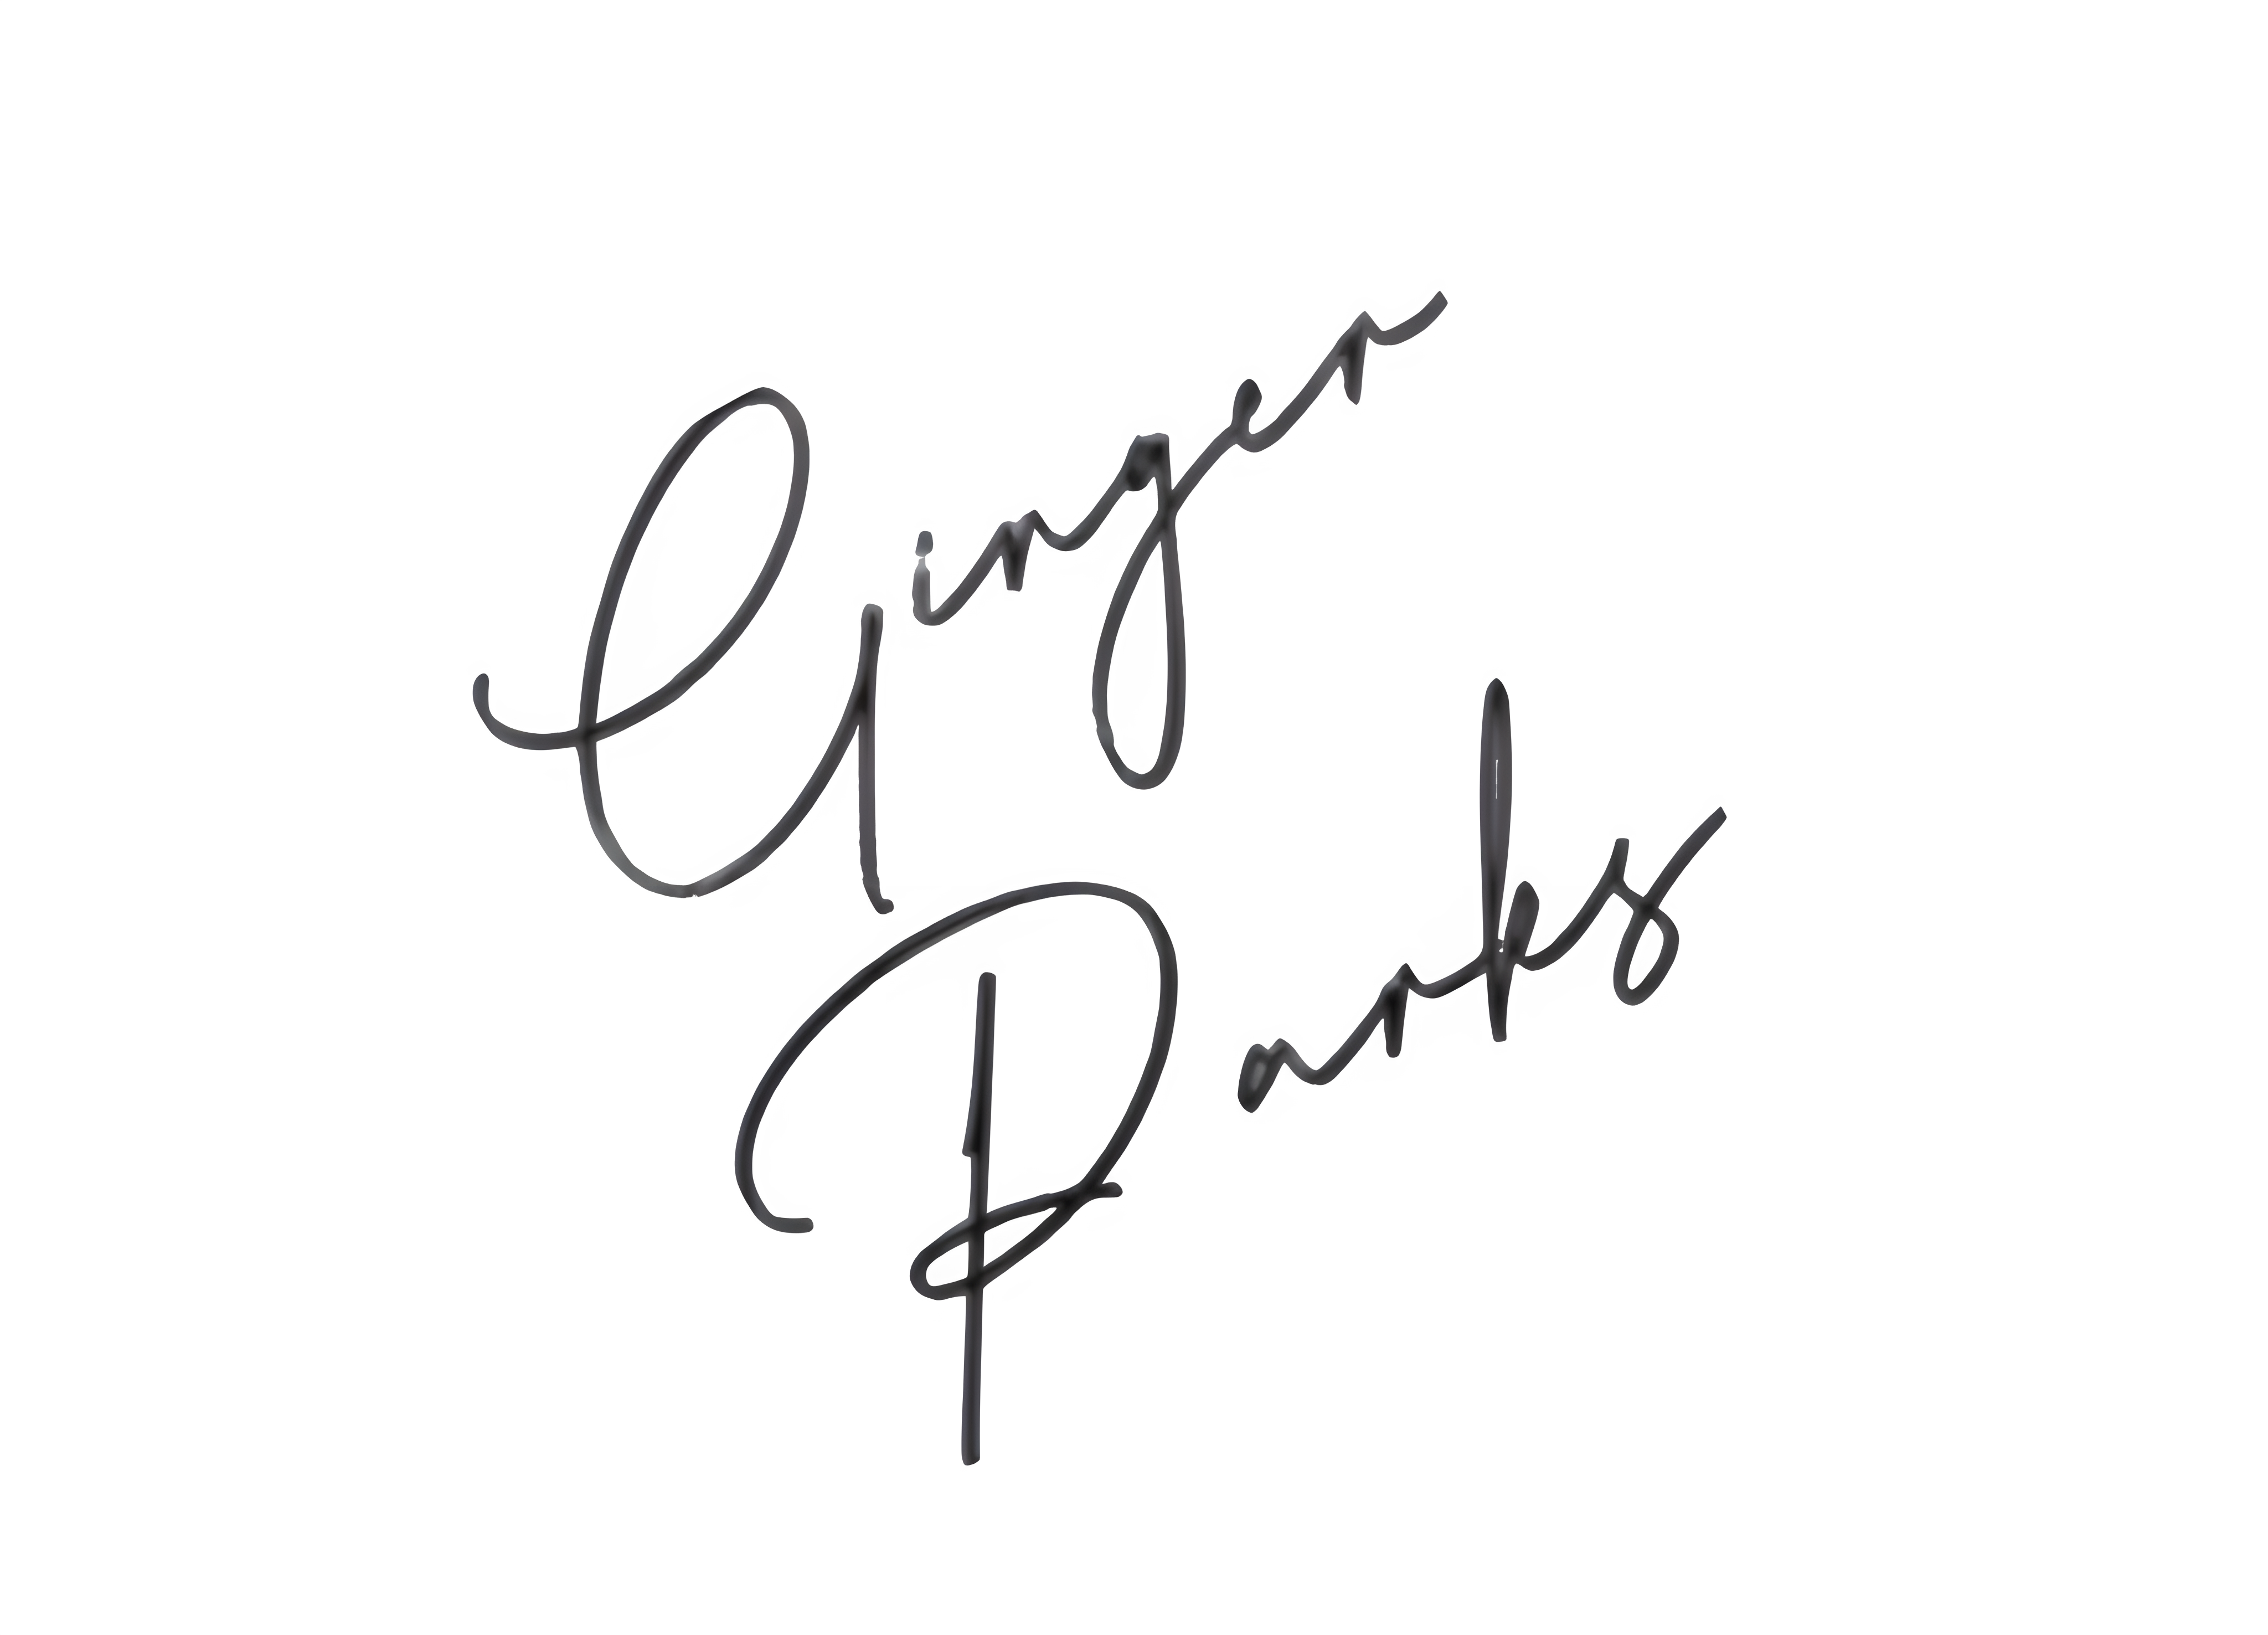 Ginger
Parks